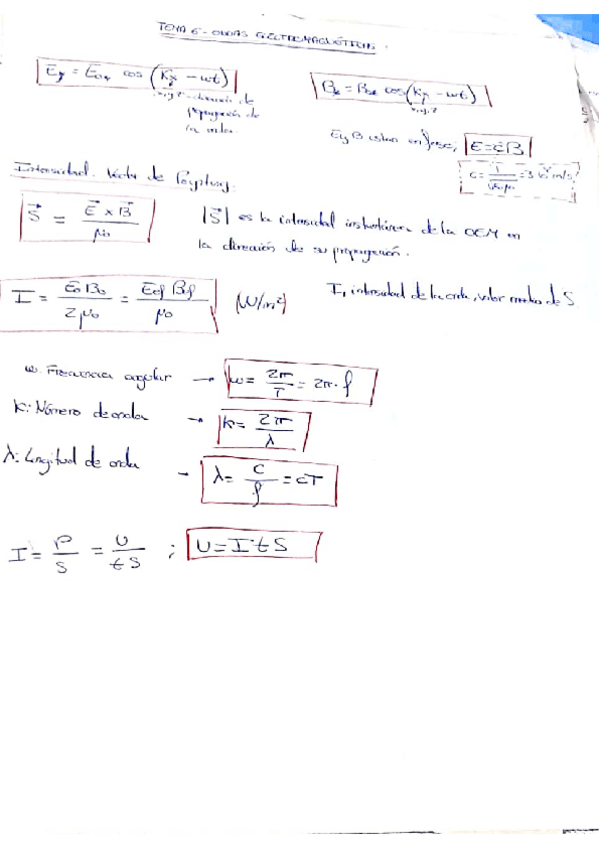 TEMA 6 - ONDAS ELECTROMAGNÉTICAS.
Ey = Eoy cos (Kx - wt)
x, y, z - dirección de propagación de la onda.
Bz = Boz cos (Kx - wt)
x, y, z
E y B están en fase; E = cB
c = 1/√(ε₀μ₀) = 3·10⁸ m/s
Intensidad. Vector de Poynting.
S⃗ = (E⃗ x B⃗)/μ₀
|S⃗| es la intensidad instantánea de la OEM en
la dirección de su propagación.
I = E₀B₀/2μ₀ = Eef Bef/μ₀ (W/m²)
I, intensidad de la onda, valor medio de S
w: Frecuencia angular → w = 2π/T = 2π·f
K: Número de onda → K = 2π/λ
λ: Longitud de onda - λ = c/f = cT
I = P/S = U/tS ; U = I·t·S